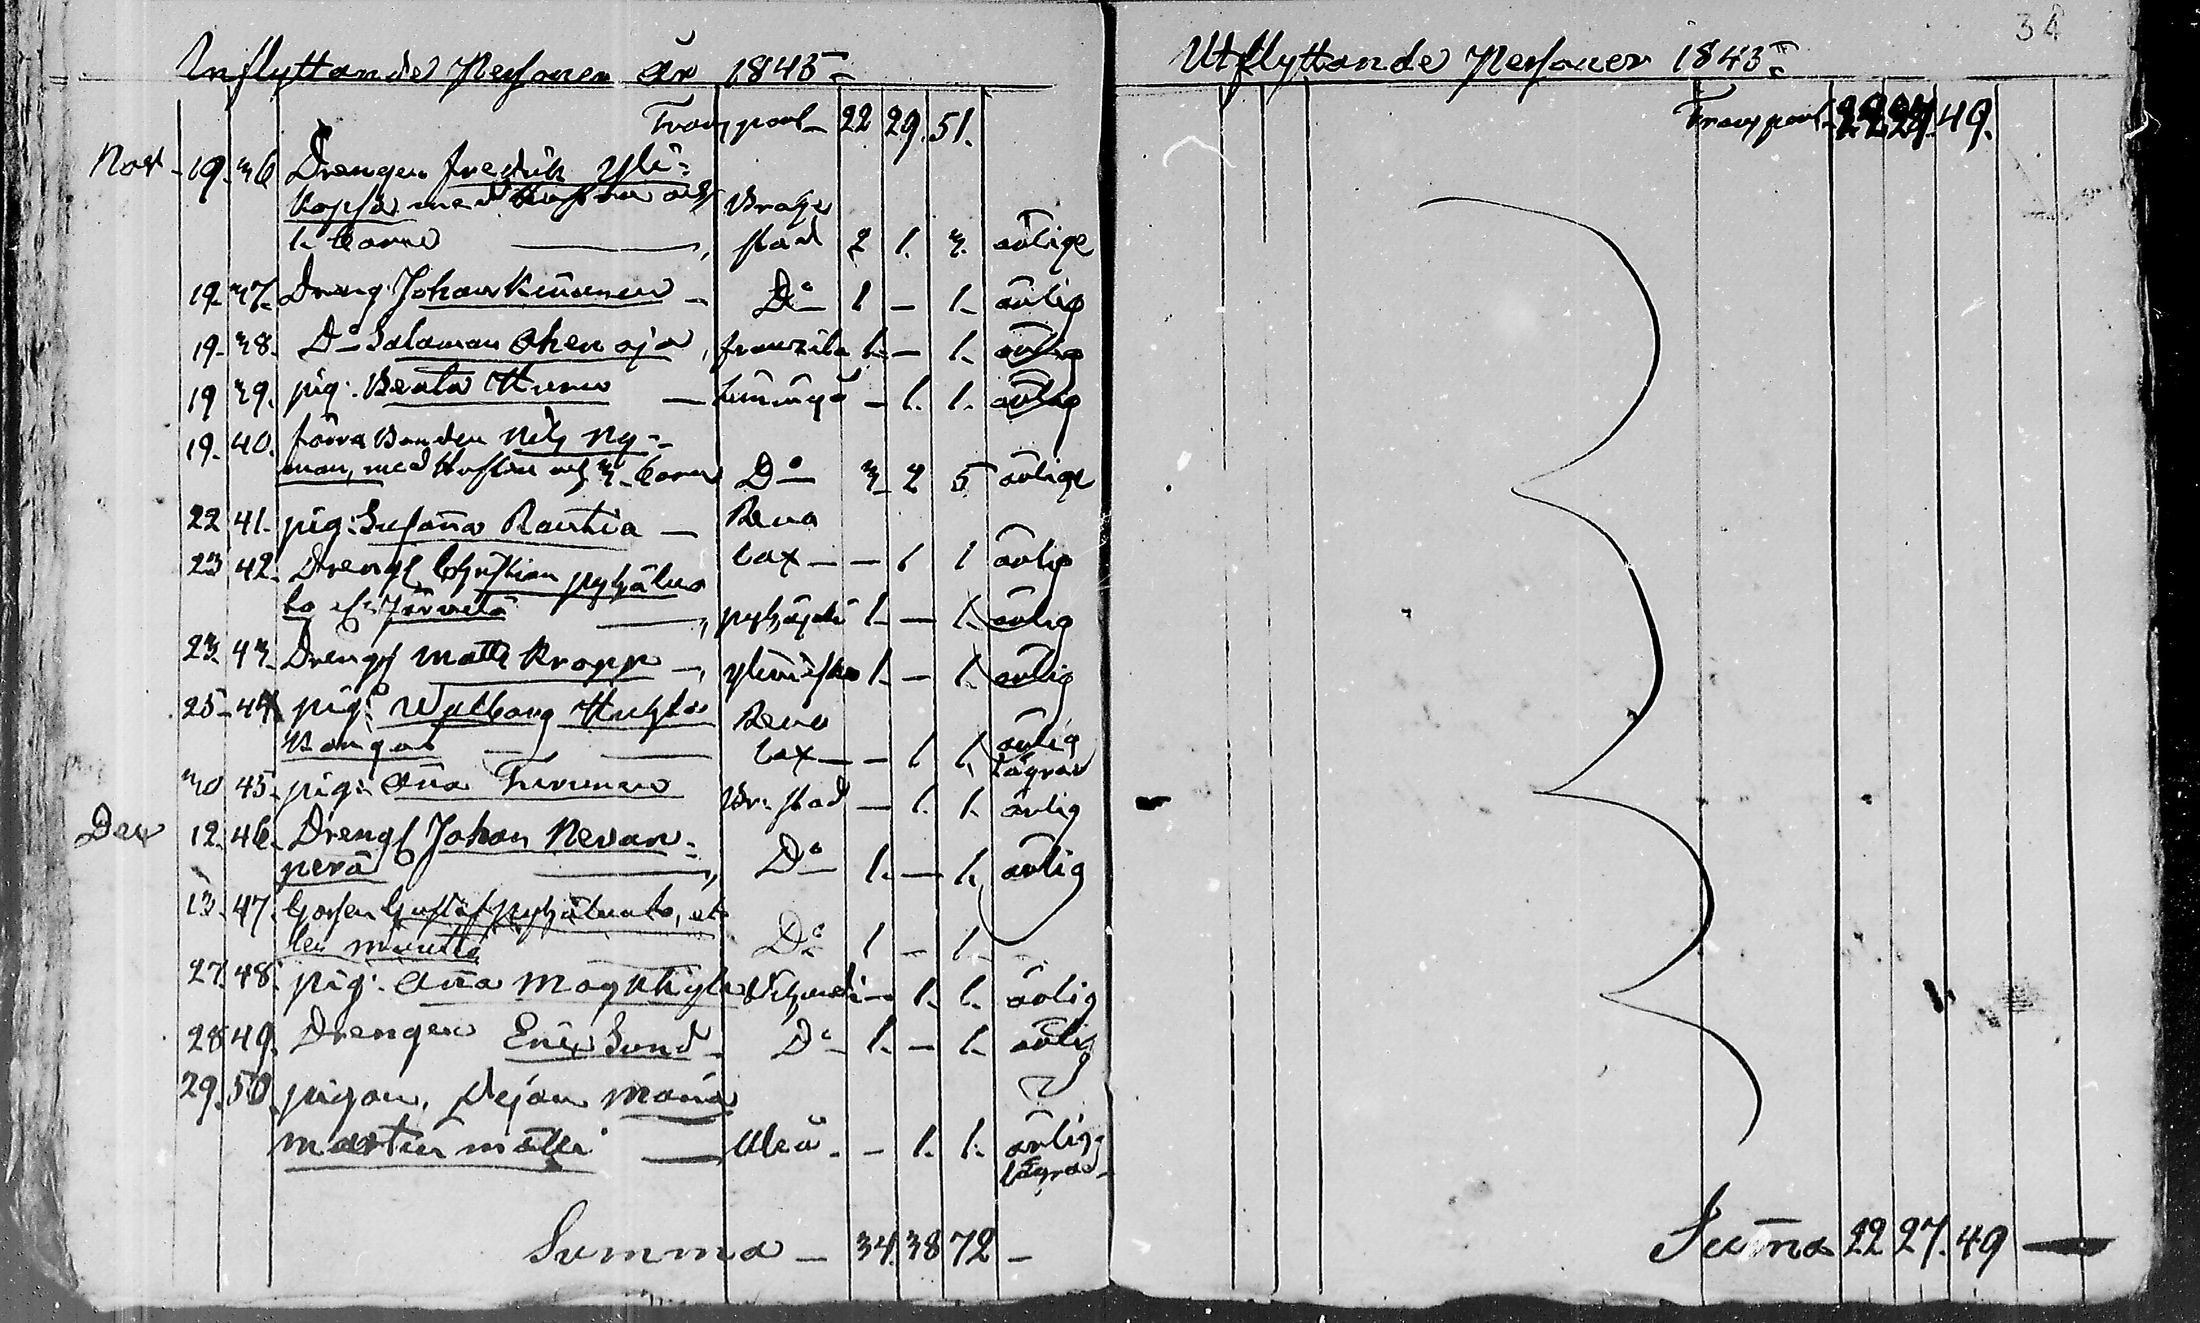 Inflyttande Personer år 1843
Transport 22 29 51.
Nov 19. 36 Drengen Fredrik Yli-
kopsa med hustru och Brahe
1. barn stad 2 1. 3. ärlige
19. 37. Dreng. Johan Kinnunen Do 1 — 1. ärlig
19. 38. Do Salomon Ohenoja, Frantzila 1. — 1. ärlig
19 39. pig. Beata Huru Limingo — 1. 1. ärlig
19. 40. förra Bonden Nils Ny-
man, med Hustru och 3. barn Do 3 2 5 ärlige
22 41. pig: Susanna Rautia — Revo
lax — — 1 1 ärlig
23 42. Dreng Christian pyhäluo
to Järvelä pyhäjoki 1. — 1. ärlig
23. 43. Dreng Matts Kropp —, Ylivieska 1. — 1. ärlig
25 44 pig: Walborg Huhta Revo
kangas lax — — 1 1. ärlig
30 45. pig: Anna Turunen Br: stad — 1. 1. ärlig
Dec 12. 46. Dreng Johan Nevan-
perä Do 1. — 1. ärlig
13. 47. Gossen Gustaf pyhäluoto,
Do 1 — 1.
27. 48. pig: Anna — 1. 1. ärlig
28 49. Drengen Eric Sund Do 1. — 1. ärlig
29. 50. pigan, Dejan Maria
Martin matti Uleå. — 1. 1. ärlig
Summa — 34. 38 72 —
34
Utflyttande Personer 1843
Transport 22 27. 49.
Summa 22 27. 49 —